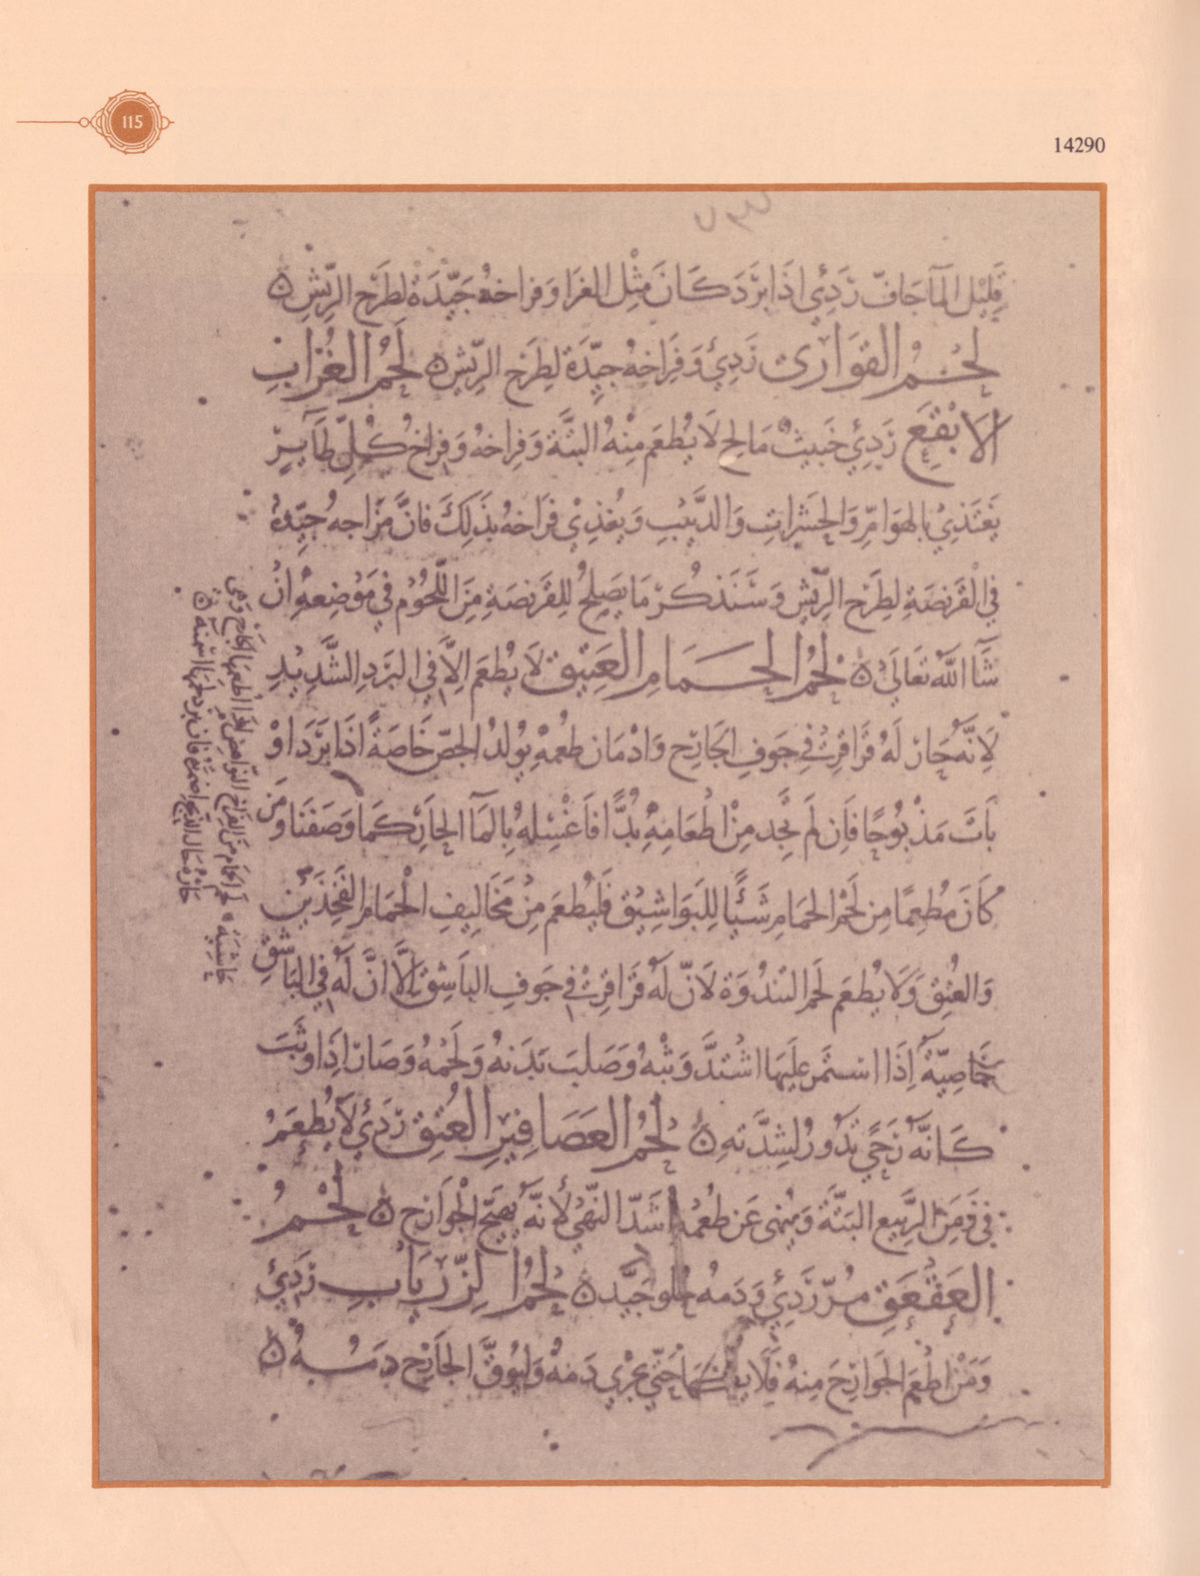 115
14290
قَلِيْل الْمآ جَافّ رَدِئ اذَا بَرَد كَانَ مِثْل الغرَا وَفراخهُ جَيِّدَةُ لطَرْح الرِّيشِ ه
لَحْمُ القوَارى رَدِئ وَفِرَاخِهُ جيِّدَة لِطَرْح الرِّيْشِ ه لَحْمُ الغُرَابِ
الاَبْقِعِ رَدِئ خَبيثٌ مَالح لَا يُطعَم مِنْهُ البتَّة وَفِرَاخهُ وَفِرَاخ كُلِّ طَآيرٍ
يَغتَذِيْ بالهوَامِّ وَالحشرَاتِ وَالدَّبِيْبِ وَيُغذِيْ فرَاخهُ بذَلِكَ فانَّ مزَاجه جيِّدهُ
في القَرْنَصَةِ لطَرْح الرِّيْشِ وَسَنَذكُرْ مَا يَصلِحُ لِلقَرنصَةِ مِنَ اللّحُوْم في مَوْضعهِ انْ
شَآ اللّٰه تعَالَى ه لحْمُ الحَمَامِ العَتِيْق لَا يُطعَم الاَّ في البَرْدِ الشَّدِيْدِ
لاَنَّهُ حَار لَهُ قرَاقِرُ فِي جَوفِ الجَارح وَادْمَان طعْمهِ يُولدُ الجصّ خَاصَةً اذَا بَرَدَ اوْ
بَاتَ مَذْبُوحًا فاِن لَم تَجد مِنْ اطْعَامِهِ بُدًّا فَاغسِلهُ بِالمَآ الحَارّ كمَا وَصَفنَا وَمَن
كَانَ مُطعِمًا مِن لَحْمِ الحمَامِ شَيْئًا لِلبَوَاشِيْق فَليُطعَم مِنْ مَخَاليِفِ الْحَمَام الفَخذَيْن
وَالعُنِق وَلَا يُطعَم لَحْم الثنْدُوَة لاَنّ لَهُ قَرَاقِرُ فِي جَوفِ البَاشِقِ الَّا انَّ لَهُ في البَاشقِ
خَاصِيّةٌ اِذَا اسْتمَّر عليَها اشْتدَّ وَثْبُهُ وَصَلبَ بَدَنهُ وَلَحْمُهُ وَصَارَ اذَا وَثَبَ
كَانَّهُ رَحًى تَدُوْرُ لشِدَّته ه لَحْمُ العَصَافِيْرِ العُتِق رَدِئ لا يُطعَمُ
في زمَن الرَّبِيع البَتَّةَ وَيُنهى عَن طُعْمهِ اشَدّ النَّهْى لانَّهُ يُهيّج الْجَوَارح ه لَحْمُ
العَقْعَقِ مُرّ رَدِئ وَدَمهُ حُلو جَيّد ه لَحْمُ الزِّرْيَابِ رَدِئ
وَمَنْ اطْعَمَ الجَوَارحَ مِنهُ فَلَا حَتّى يجْرِي دَمهُ وَليُوَقَّ الجَارح دَمهُ ه
حَاشِيَة ه لحم الحمَام مِنَ الفرَاخ النَّوَاهِض اذَا اطْعَمَهَا الجَارِح وَهى
حَارة